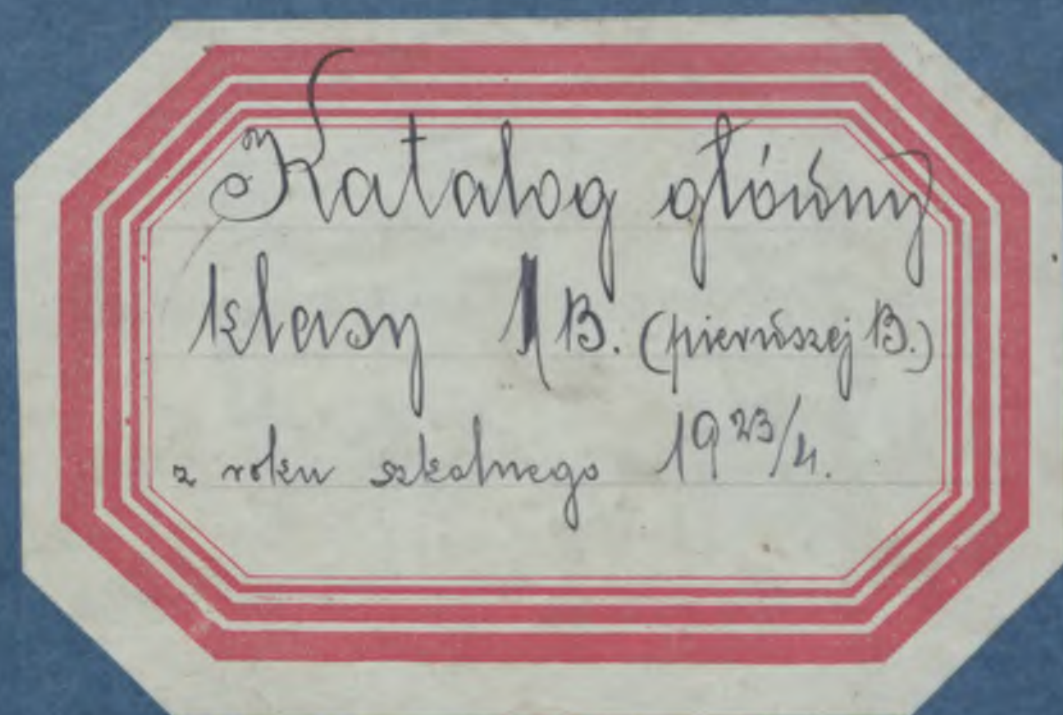 Katalog główny
klasy 1 B. (pierwszej B.)
z roku szkolnego 1923/4.